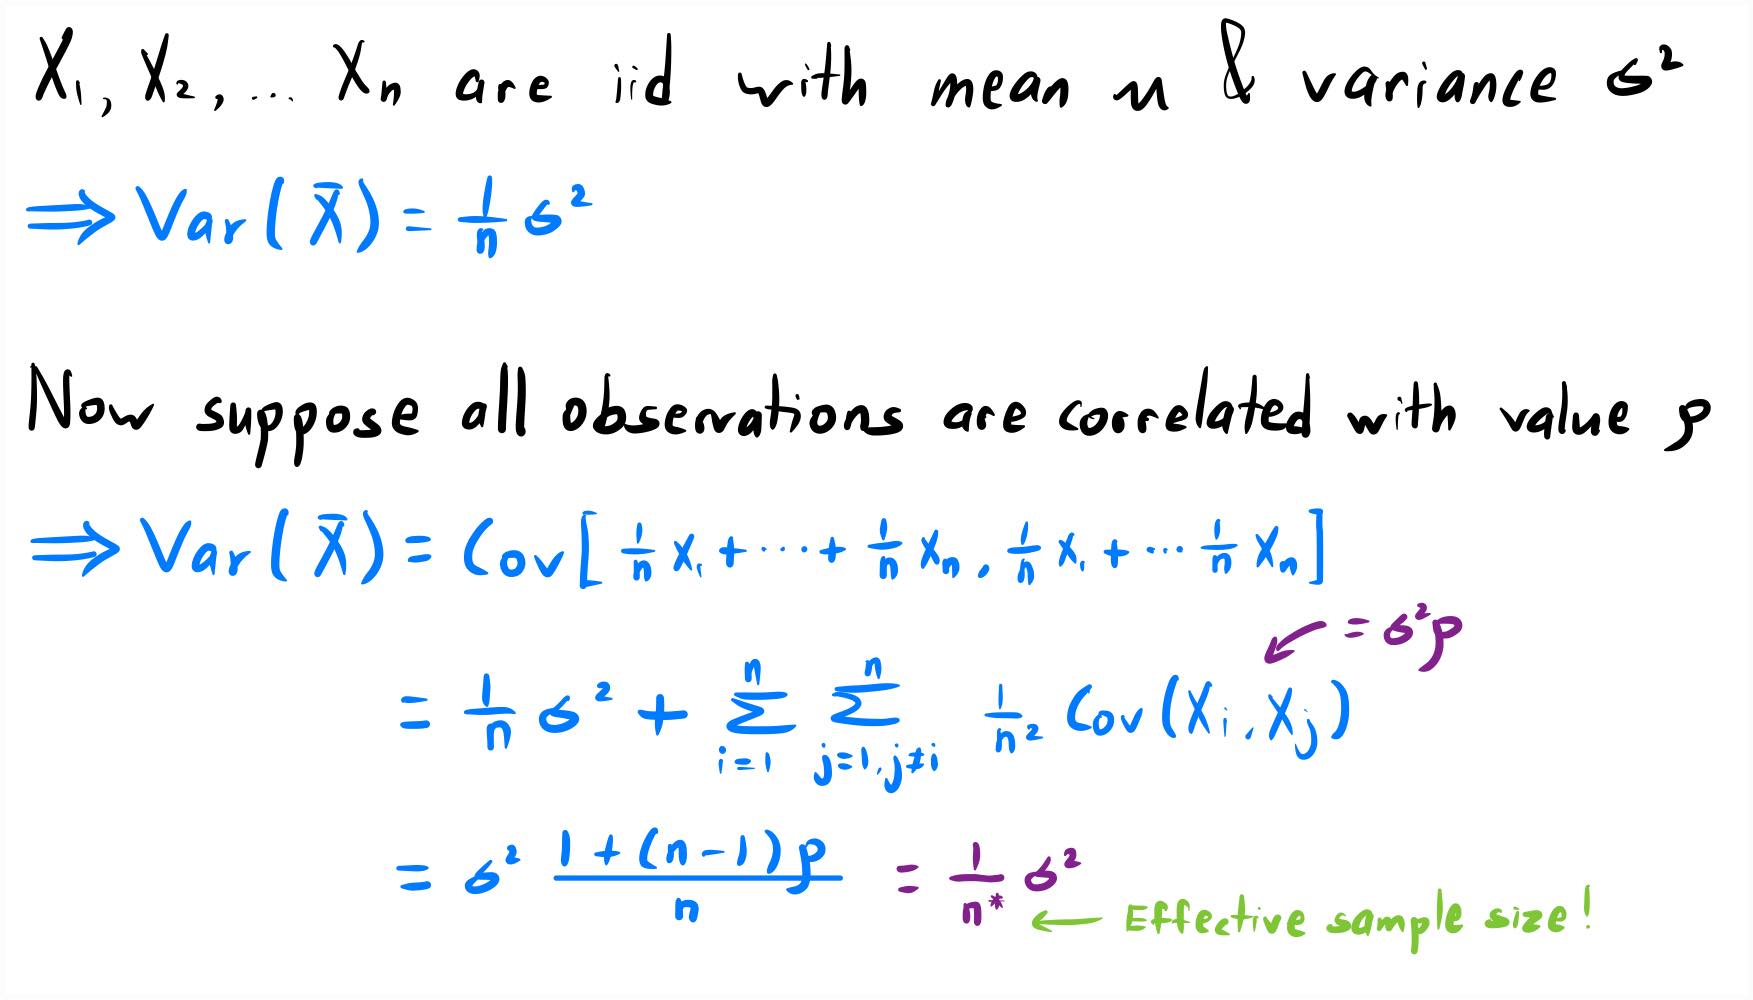 X₁, X₂, ... Xₙ are iid with mean μ & variance σ²
⇒ Var(X̄) = 1/n σ²
Now suppose all observations are correlated with value ρ
⇒ Var(X̄) = Cov[1/n X₁ + ··· + 1/n Xₙ, 1/n X₁ + ··· 1/n Xₙ]
= σ²ρ
= 1/n σ² + ∑ⁿᵢ₌₁ ∑ⁿⱼ₌₁,ⱼ≠ᵢ 1/n² Cov(Xᵢ, Xⱼ)
= σ² (1 + (n-1)ρ)/n = 1/n* σ²
← Effective sample size!